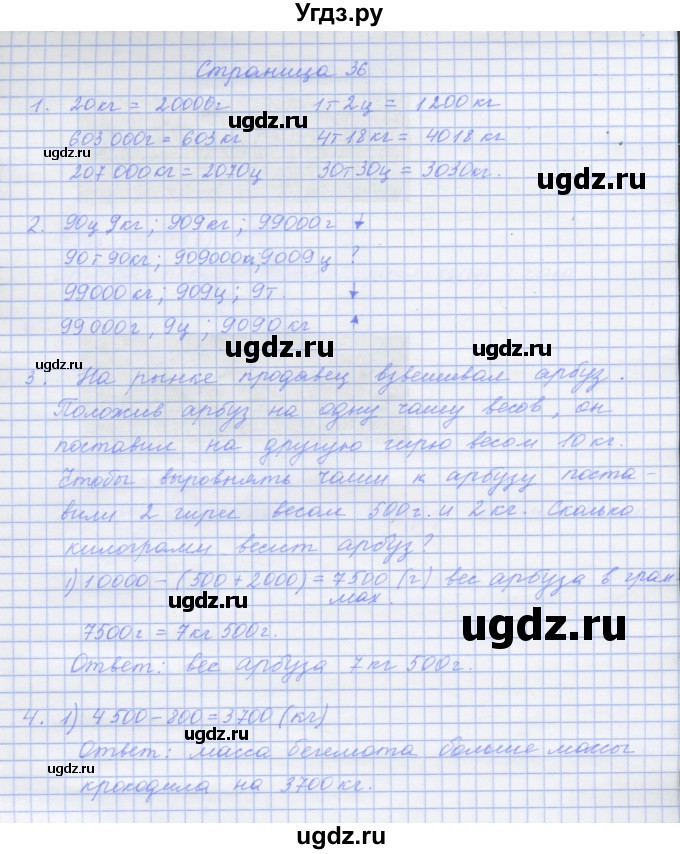 Угдз.ру
Страница 36
1. 20кг = 20000г 1т2ц = 1200кг
603000г = 603кг 4т18кг = 4018кг
207000кг = 2070ц 30т30ц = 3030кг.
2. 90ц 9кг; 909кг; 99000г ↓
90т90кг; 909000г, 9009ц ?
99000кг; 909ц; 9т. ↓
99000г, 9ц; 9090кг ↑
3. На рынке продавец взвешивал арбуз.
Положив арбуз на одну чашу весов, он
поставил на другую гирю весом 10кг.
Чтобы выровнять чаши к арбузу поста-
вили 2 гири весом 500г. и 2кг. Сколько
килограмм весит арбуз?
1) 10000 - (500 + 2000) = 7500 (г) вес арбуза в грам
мах.
7500г = 7кг 500г.
Ответ: вес арбуза 7кг 500г.
4. 1) 4500-800=3700 (кг)
Ответ: масса бегемота больше массы
крокодила на 3700кг.
ugdz.ru
ugdz.ru
ugdz.ru
ugdz.ru
ugdz.ru
ugdz.ru
ugdz.ru
ugdz.ru
ugdz.ru
ugdz.ru
ugdz.ru
ugdz.ru
ugdz.ru